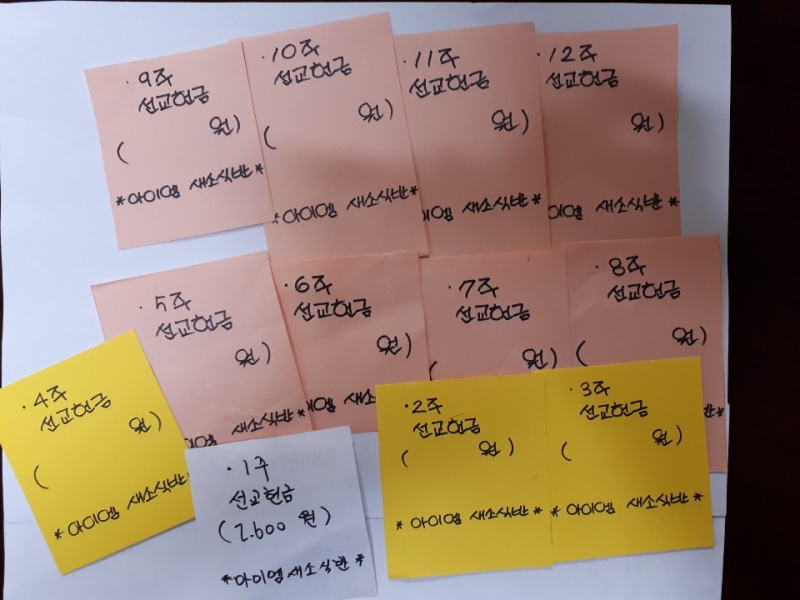 · 9주
선교헌금
( 원)
*아이엠 새소식반*
· 10주
선교헌금
( 원)
*아이엠 새소식반*
· 11주
선교헌금
원)
아이엠 새소식반*
· 12주
선교헌금
원)
아이엠 새소식반*
· 5주
선교헌금
원)
아이엠 새소식반*
· 6주
선교헌금
원)
아이엠 새소
· 7주
선교헌금
( 원)
· 8주
선교헌금
( 원)
반*
· 4주
선교헌금
( 원)
* 아이엠 새소식반
· 1주
선교헌금
(2.600 원)
*아이엠 새소식반*
· 2주
선교헌금
( 원)
* 아이엠 새소식반 *
· 3주
선교헌금
( 원)
* 아이엠 새소식반 *